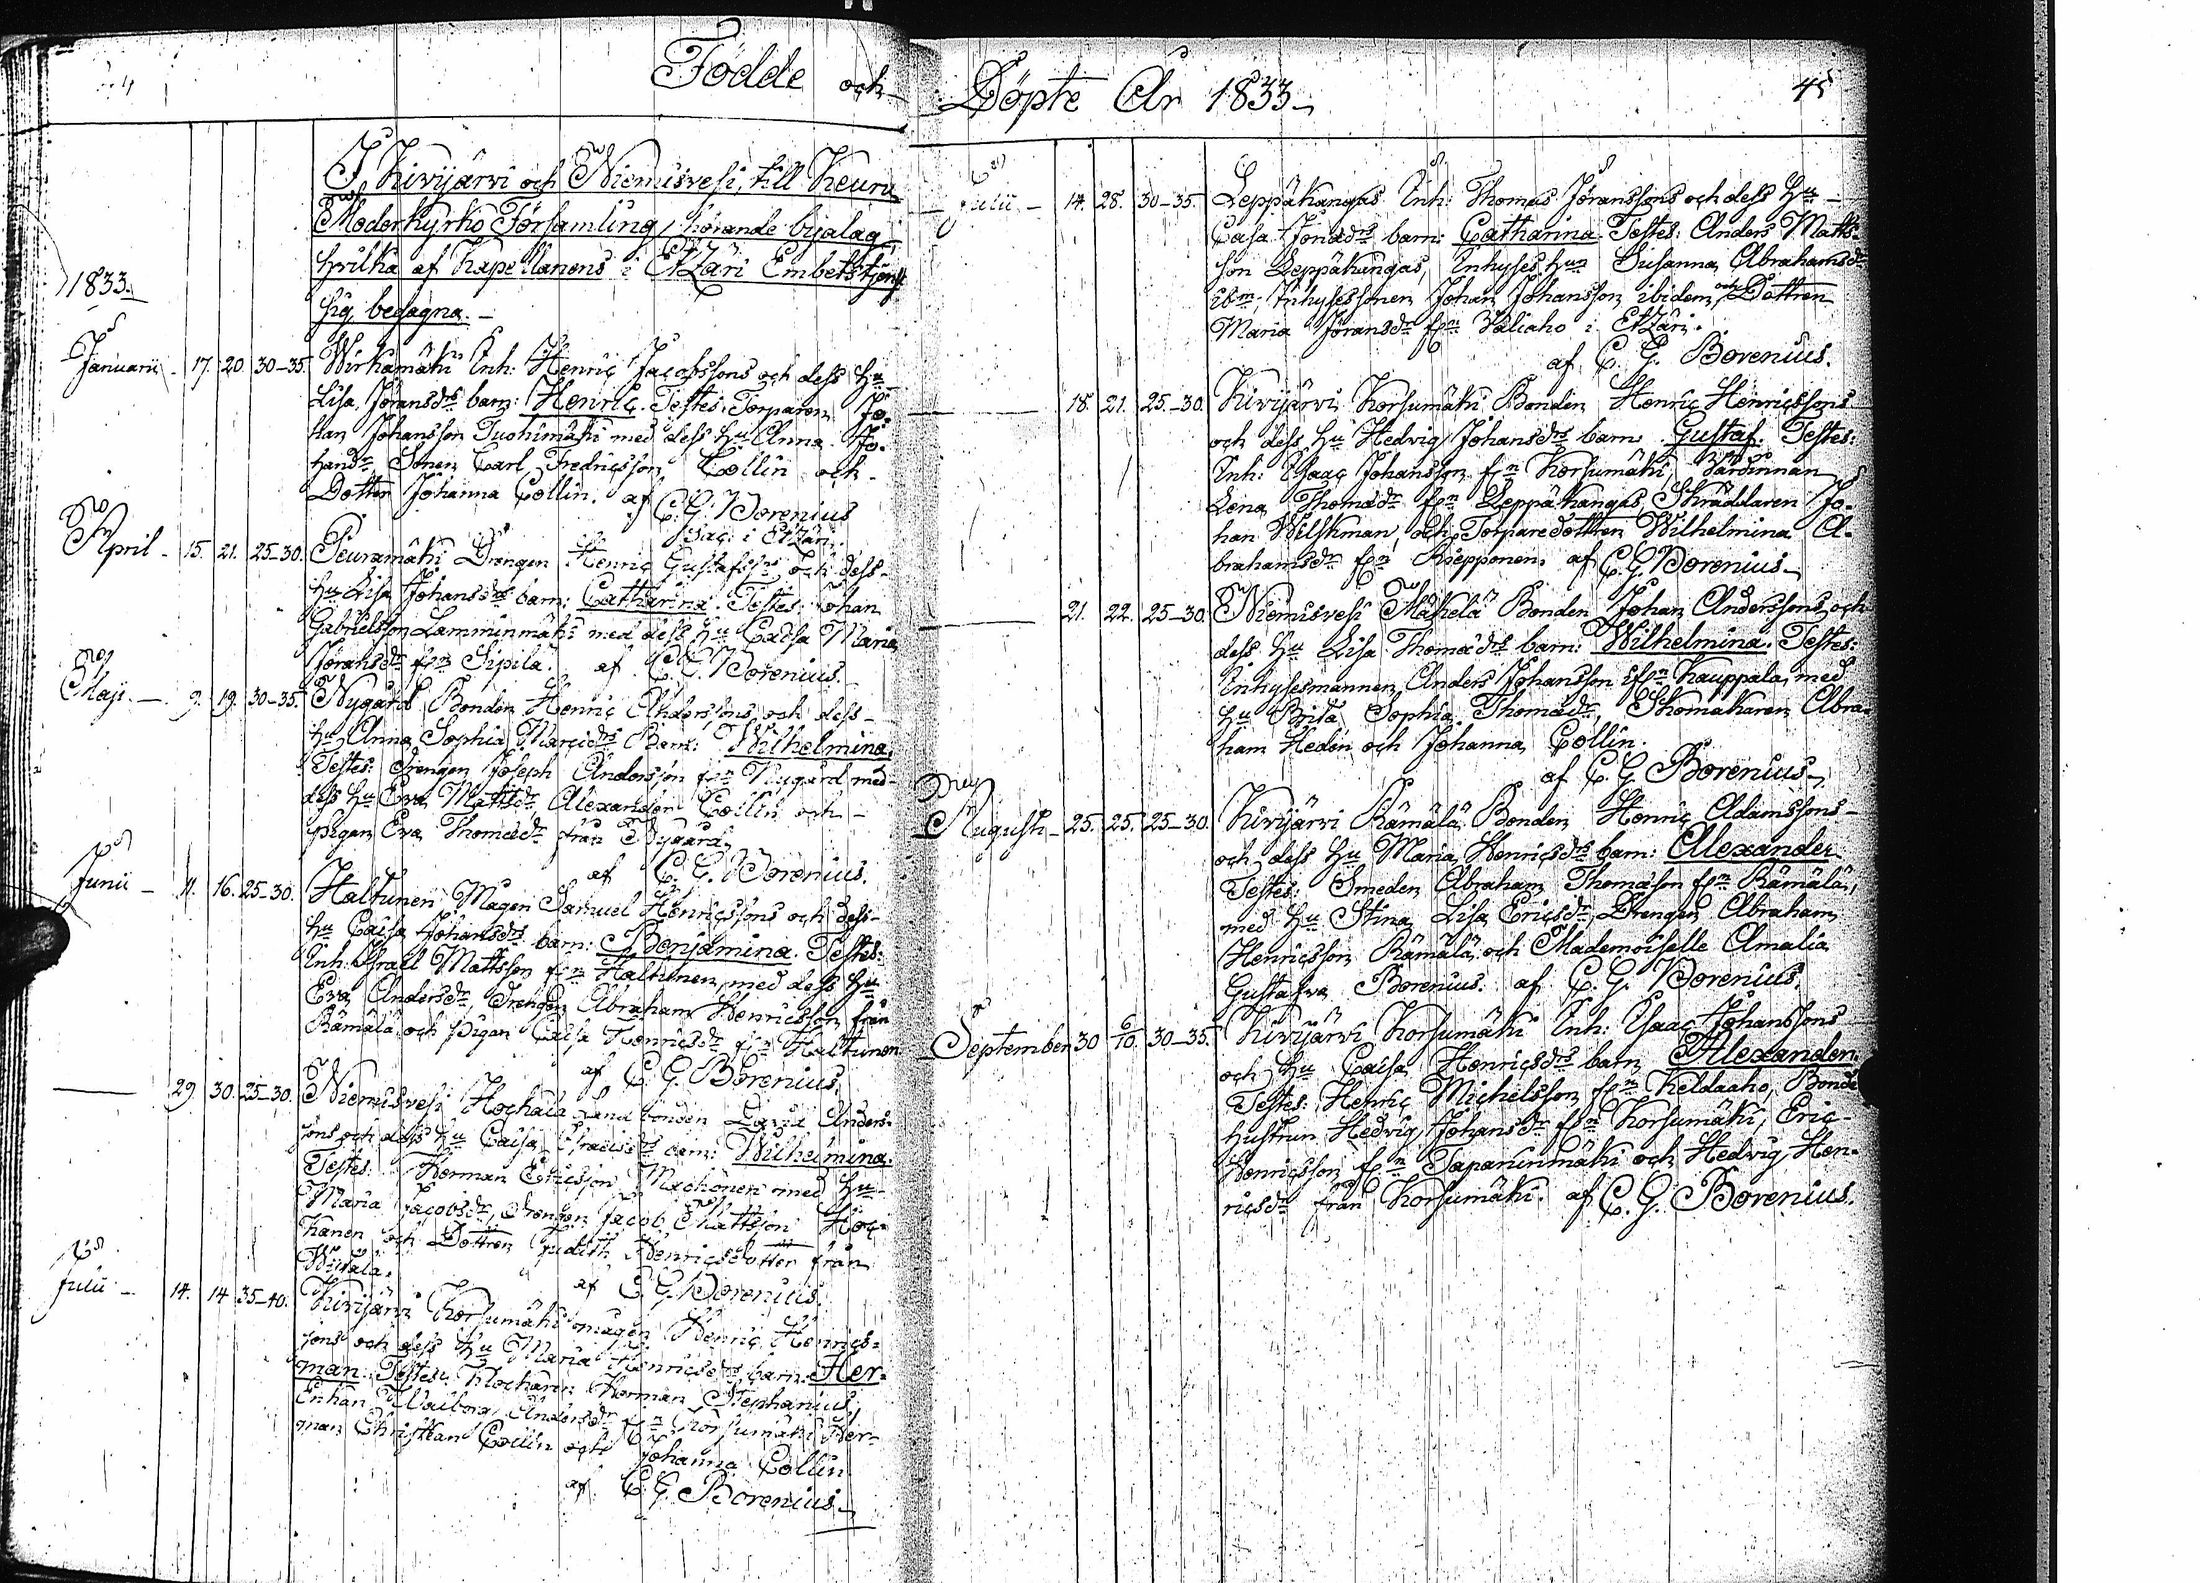 Födde och
I Kivijärvi och Niemisvesi, till Keuru
Moderkyrko Församling, hörande byalag
hvilka af Kapellanens i Etzäri Embetstjenst
sig begagna. –
1833.
Januarii – 17. 20. 30–35. Wirkamäki Inh: Henric Jacobssons och dess Hu
Lisa Joransdrs barn: Henric. Testes: Torparen Jo-
han Johansson Tuohimäki med dess Hu Anna Jo-
handr, Sonen Carl Fredricsson Collin och
Dotter Johanna Collin. af C. G. Borenius
Sac: i Etzäri.
April – 15. 21. 25–30. Peuramäki Drengen Henric Gustafssns och dess
Hu Lisa Johansdrs barn: Catharina. Testes: Johan
Gabrielsson Lamminmäki med dess Hu Cadsa Maria
Joransdr frn Sipilä. af C. G. Borenius.
Maji. – 9. 19. 30–35. Nygård Bonden Henric Anderssons och dess
Hu Anna Sophia Marcidrs Barn: Wilhelmina.
Testes: Drengen Joseph Andersson frn Nygård med
dess Hu Eva Mattsdr Alexander Collin och
pigan Eva Thomædr från Nygård,
af C. G. Borenius.
Junii – 11. 16. 25–30. Haltunen Mågen Samuel Henricssons och dess
Hu Caisa Johansdrs barn: Benjamina. Testes:
Inh: Israel Mattsson frn Haltunen, med dess Hu
Eva Andersdr, Drengen Abraham Henricsson från
Rämälä och Pigan Caisa Henricsdr frn Haltunen
af C. G. Borenius.
29. 30. 25–30. Niemisvesi Hochala Land bonden David Anders-
sons och dess Hu Caisa barn: Wilhelmina.
Testes: Herman Ericsson Machonen med Hu
Maria Jacobsdr, Drengen Jacob Mattsson Hoc-
kanen och Dottren Judith Henricsdotter från
Wiitala.
af C. G. Borenius.
Julii – 14. 14 35–40. Kivijärvi Korsumäki mågen Henric Henrics-
sons och dess Hu Maria Henricsdrs barn: Her-
man. Testes: Klockaren Herman Stephanius,
Enkan Walborg Andersdr frn Korsumäki Her-
man Christian Collin och
Johanna Collin
af C. G. Borenius.
Döpte År 1833
45
Julii – 14. 28. 30–35. Leppäkangas Inh: Thomas Joranssons och dess Hu
Caisa Jonædrs barn: Catharina. Testes: Anders Matts-
son Leppäkangas, Inhyses hun Susanna Abrahamsdr
ibm, Inhysessonen Johan Johansson ibidem, och Dottren
Maria Joransdr frn Valiaho i Etzäri.
af C. G. Borenius.
18. 21. 25–30. Kivijärvi Korsumäki Bonden Henric Henricssons
och dess Hu Hedvig Johansdrs barn Gustaf. Testes:
Inh: Isaac Johansson frn Korsumäki, Värdinnan
Lena Thomædr frn Leppäkangas, Skräddaren Jo-
han Wilskman, och Torpare dottren Wilhelmina A-
brahamsdr frn Riepponen. af C. G. Borenius
21. 22. 25–30. Niemisvesi Mäkelä Bonden Johan Anderssons och
dess Hu Lisa Thomædrs barn: Wilhelmina. Testes:
Inhysesmannen Anders Johansson frn Kauppala, med
Hu Brita Sophia Thomædr, Skomakaren Abra-
ham Hedén och Johanna Collin.
af C. G. Borenius
Augusti – 25. 25. 25–30. Kivijärvi Rämälä Bonden Henric Adamssons
och dess Hu Maria Henricsdrs barn: Alexander.
Testes: Smeden Abraham Thomasson frn Rämälä,
med Hu Stina Lisa Ericsdr, Drengen Abraham
Henricsson Rämälä, och Mademoiselle Amalia
Gustafva Borenius. af C. G. Borenius.
September 30 6/10. 30–35. Kivijärvi Korsumäki Inh: Isaac Johanssons
och Hu Caisa Henricsdrs barn Alexander.
Testes: Henric Michelsson frn Keldaaho, Bonde
hustrun Hedvig Johansdr frn Korsumäki, Eric
Henricsson frn Tapaninmäki och Hedvig Hen-
ricsdr från Korsumäki. af C. G. Borenius.